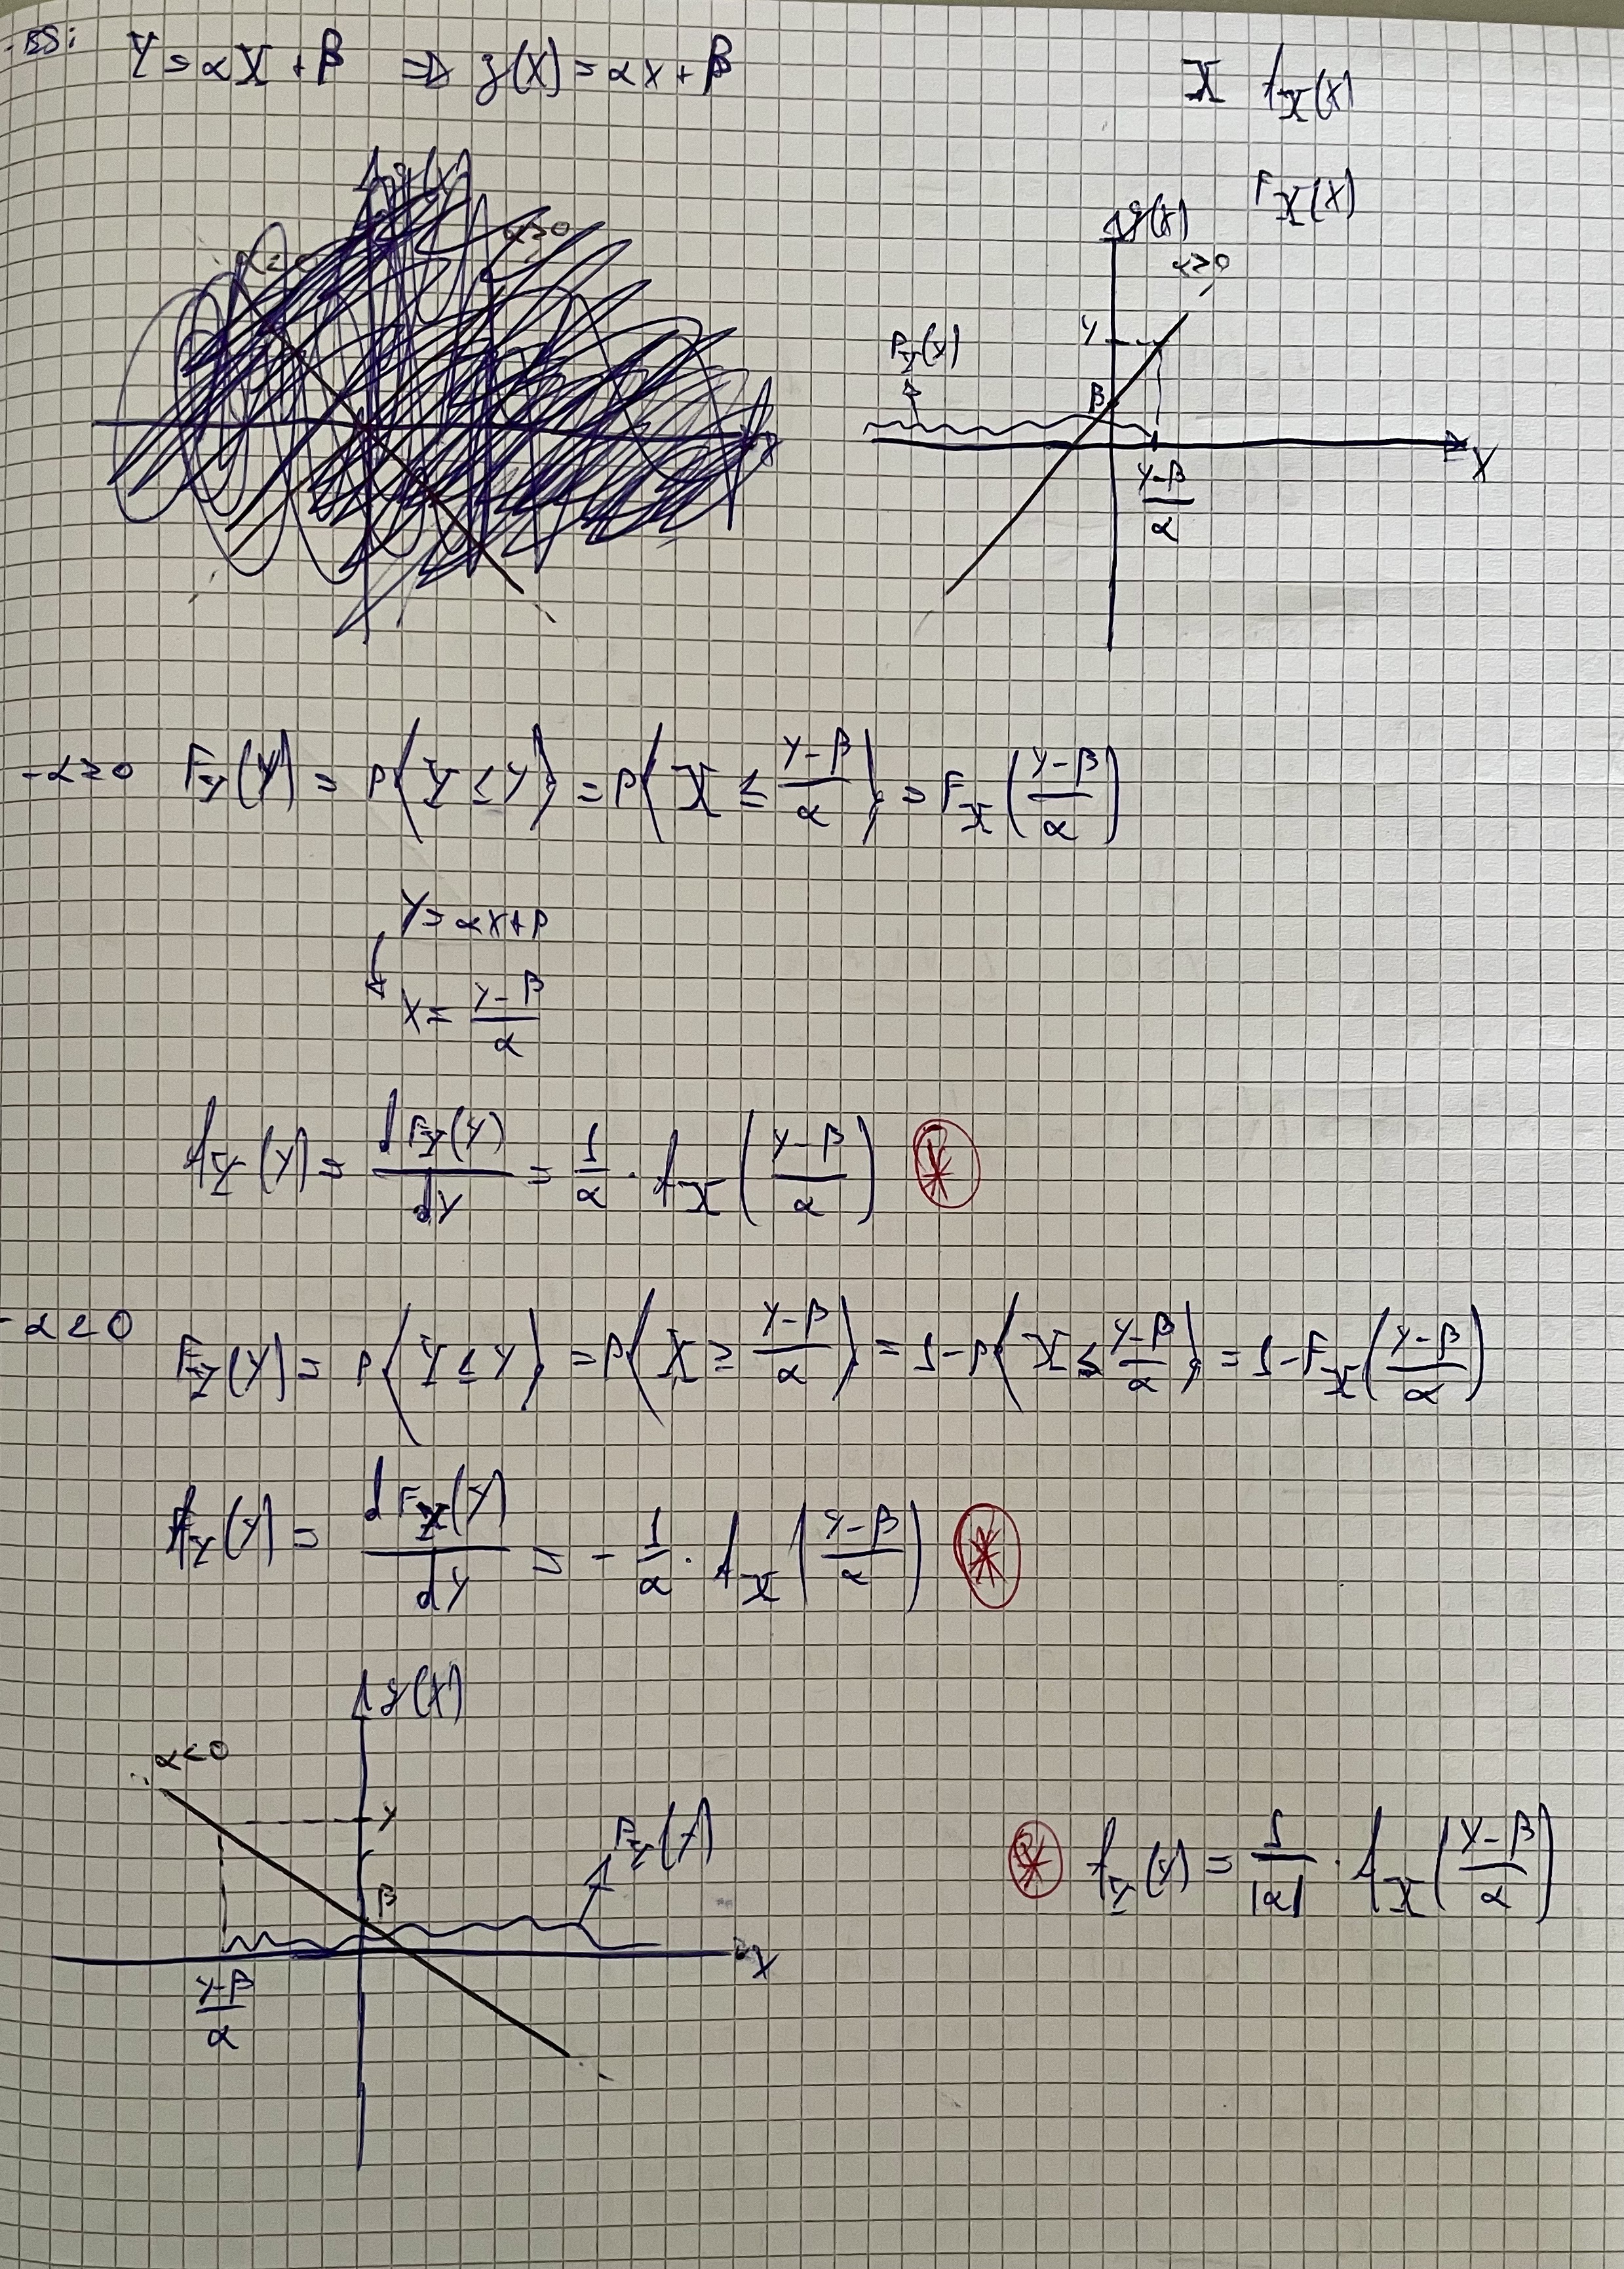 -BS: Y = αX + β ⇒ g(x) = αx + β
X f_X(x)
F_X(x)
g(x)
α>0
y
F_Y(y)
β
x
(y-β)/α
-α≥0 F_Y(y) = P{Y ≤ y} = P{X ≤ (y-β)/α} = F_X((y-β)/α)
y = αx+β
x = (y-β)/α
f_Y(y) = dF_Y(y)/dy = 1/α · f_X((y-β)/α) *
-α<0 F_Y(y) = P{Y ≤ y} = P{X ≥ (y-β)/α} = 1-P{X ≤ (y-β)/α} = 1-F_X((y-β)/α)
f_Y(y) = dF_Y(y)/dy = - 1/α · f_X((y-β)/α) *
g(x)
α<0
y
F_Y(y)
β
x
(y-β)/α
* f_Y(y) = 1/|α| · f_X((y-β)/α)